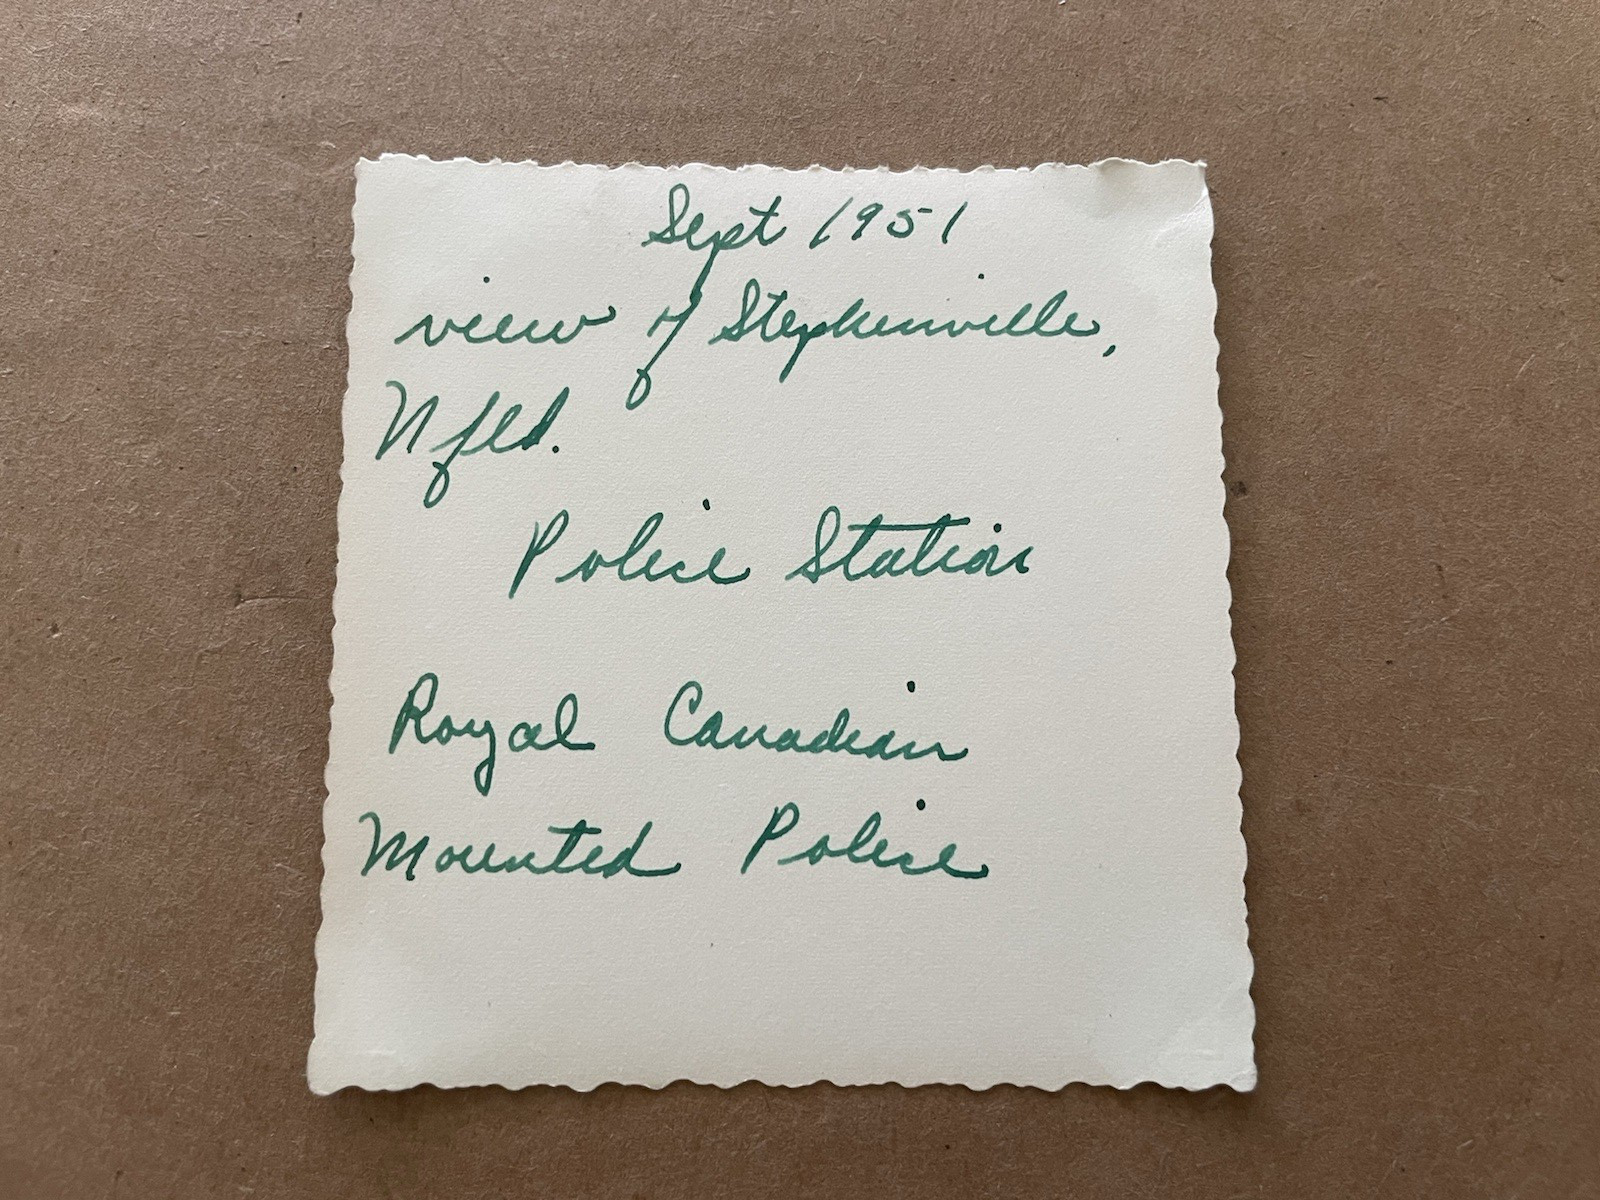 Sept 1951
view of Stephenville,
Nfld.
Police Station
Royal Canadian
Mounted Police